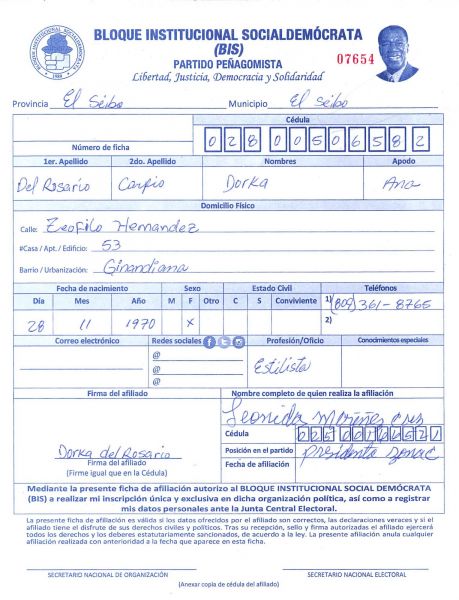 BLOQUE INSTITUCIONAL SOCIALDEMÓCRATA
(BIS)
PARTIDO PEÑAGOMISTA
Libertad, Justicia, Democracia y Solidaridad
07654
Provincia El Seibo Municipio El Seibo
Cédula
Número de ficha 028 0050658 2
1er. Apellido 2do. Apellido Nombres Apodo
Del Rosario Carpio Dorka Ana
Domicilio Físico
Calle: Teofilo Hernandez
#Casa / Apt. / Edificio: 53
Barrio / Urbanización: Ginandiana
Fecha de nacimiento Sexo Estado Civil Teléfonos
Día Mes Año M F Otro C S Conviviente 1) (809) 361-8765
28 11 1970 X 2)
Correo electrónico Redes sociales Profesión/Oficio Conocimientos especiales
@
@ Estilista
@
Firma del afiliado Nombre completo de quien realiza la afiliación
Cédula
Dorka del Rosario Posición en el partido presidenta
Firma del afiliado Fecha de afiliación
(Firme igual que en la Cédula)
Mediante la presente ficha de afiliación autorizo al BLOQUE INSTITUCIONAL SOCIAL DEMÓCRATA
(BIS) a realizar mi inscripción única y exclusiva en dicha organización política, así como a registrar
mis datos personales ante la Junta Central Electoral.
La presente ficha de afiliación es válida si los datos ofrecidos por el afiliado son correctos, las declaraciones veraces y si el
afiliado tiene el disfrute de sus derechos civiles y políticos. Tras su recepción, sello y firma autorizadas el afiliado ejercerá
todos los derechos y los deberes estatutariamente sancionados, de acuerdo a la ley. La presente afiliación anula cualquier
afiliación realizada con anterioridad a la fecha que aparece en esta ficha.
SECRETARIO NACIONAL DE ORGANIZACIÓN SECRETARIO NACIONAL ELECTORAL
(Anexar copia de cédula del afiliado)